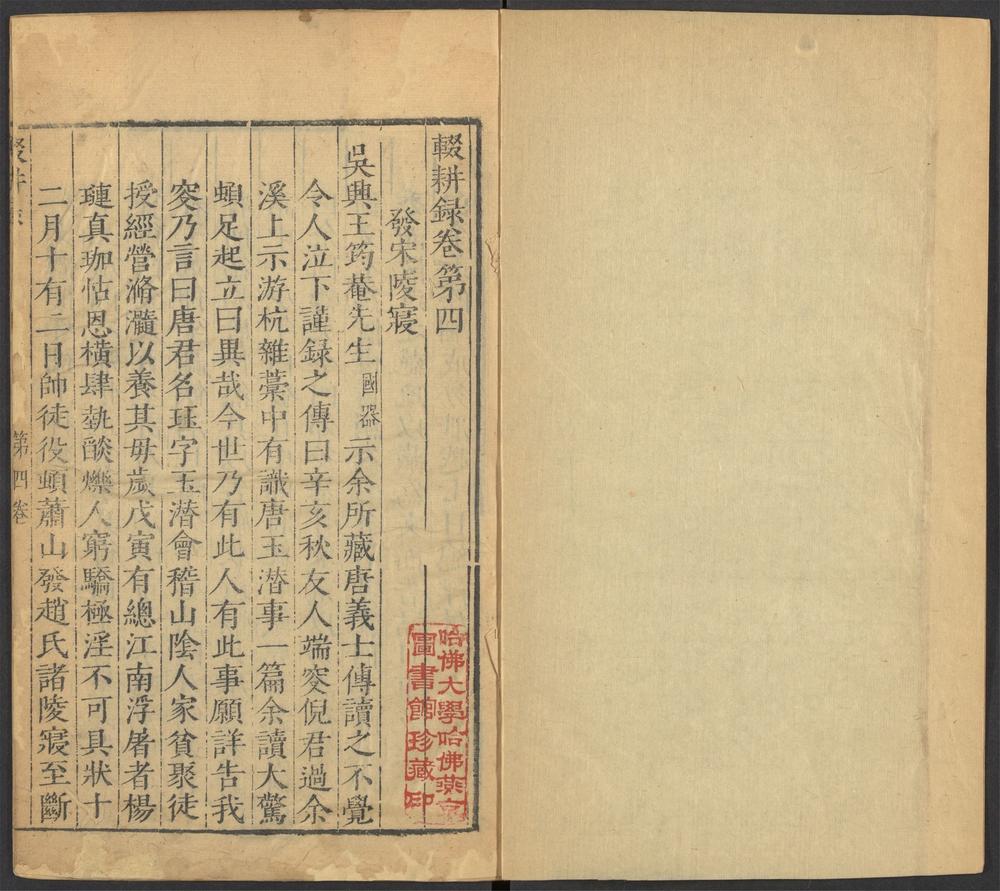 輟耕録卷第四
發宋陵寢
吳興王筠菴先生國器示余所藏唐義士傳讀之不覺
令人泣下謹録之傳曰辛亥秋友人端叜倪君過余
溪上示游杭雜藁中有識唐玉潛事一篇余讀大驚
頓足起立曰異哉今世乃有此人有此事願詳告我
叜乃言曰唐君名珏字玉潛會稽山陰人家貧聚徒
授經營滫瀡以養其毋歲戊寅有總江南浮屠者楊
璉真珈怙恩橫肆執燄爍人窮驕極淫不可具狀十
二月十有二日帥徒役頓蕭山發趙氏諸陵寢至斷
第四卷
哈佛大學哈佛燕京
圖書館珍藏印